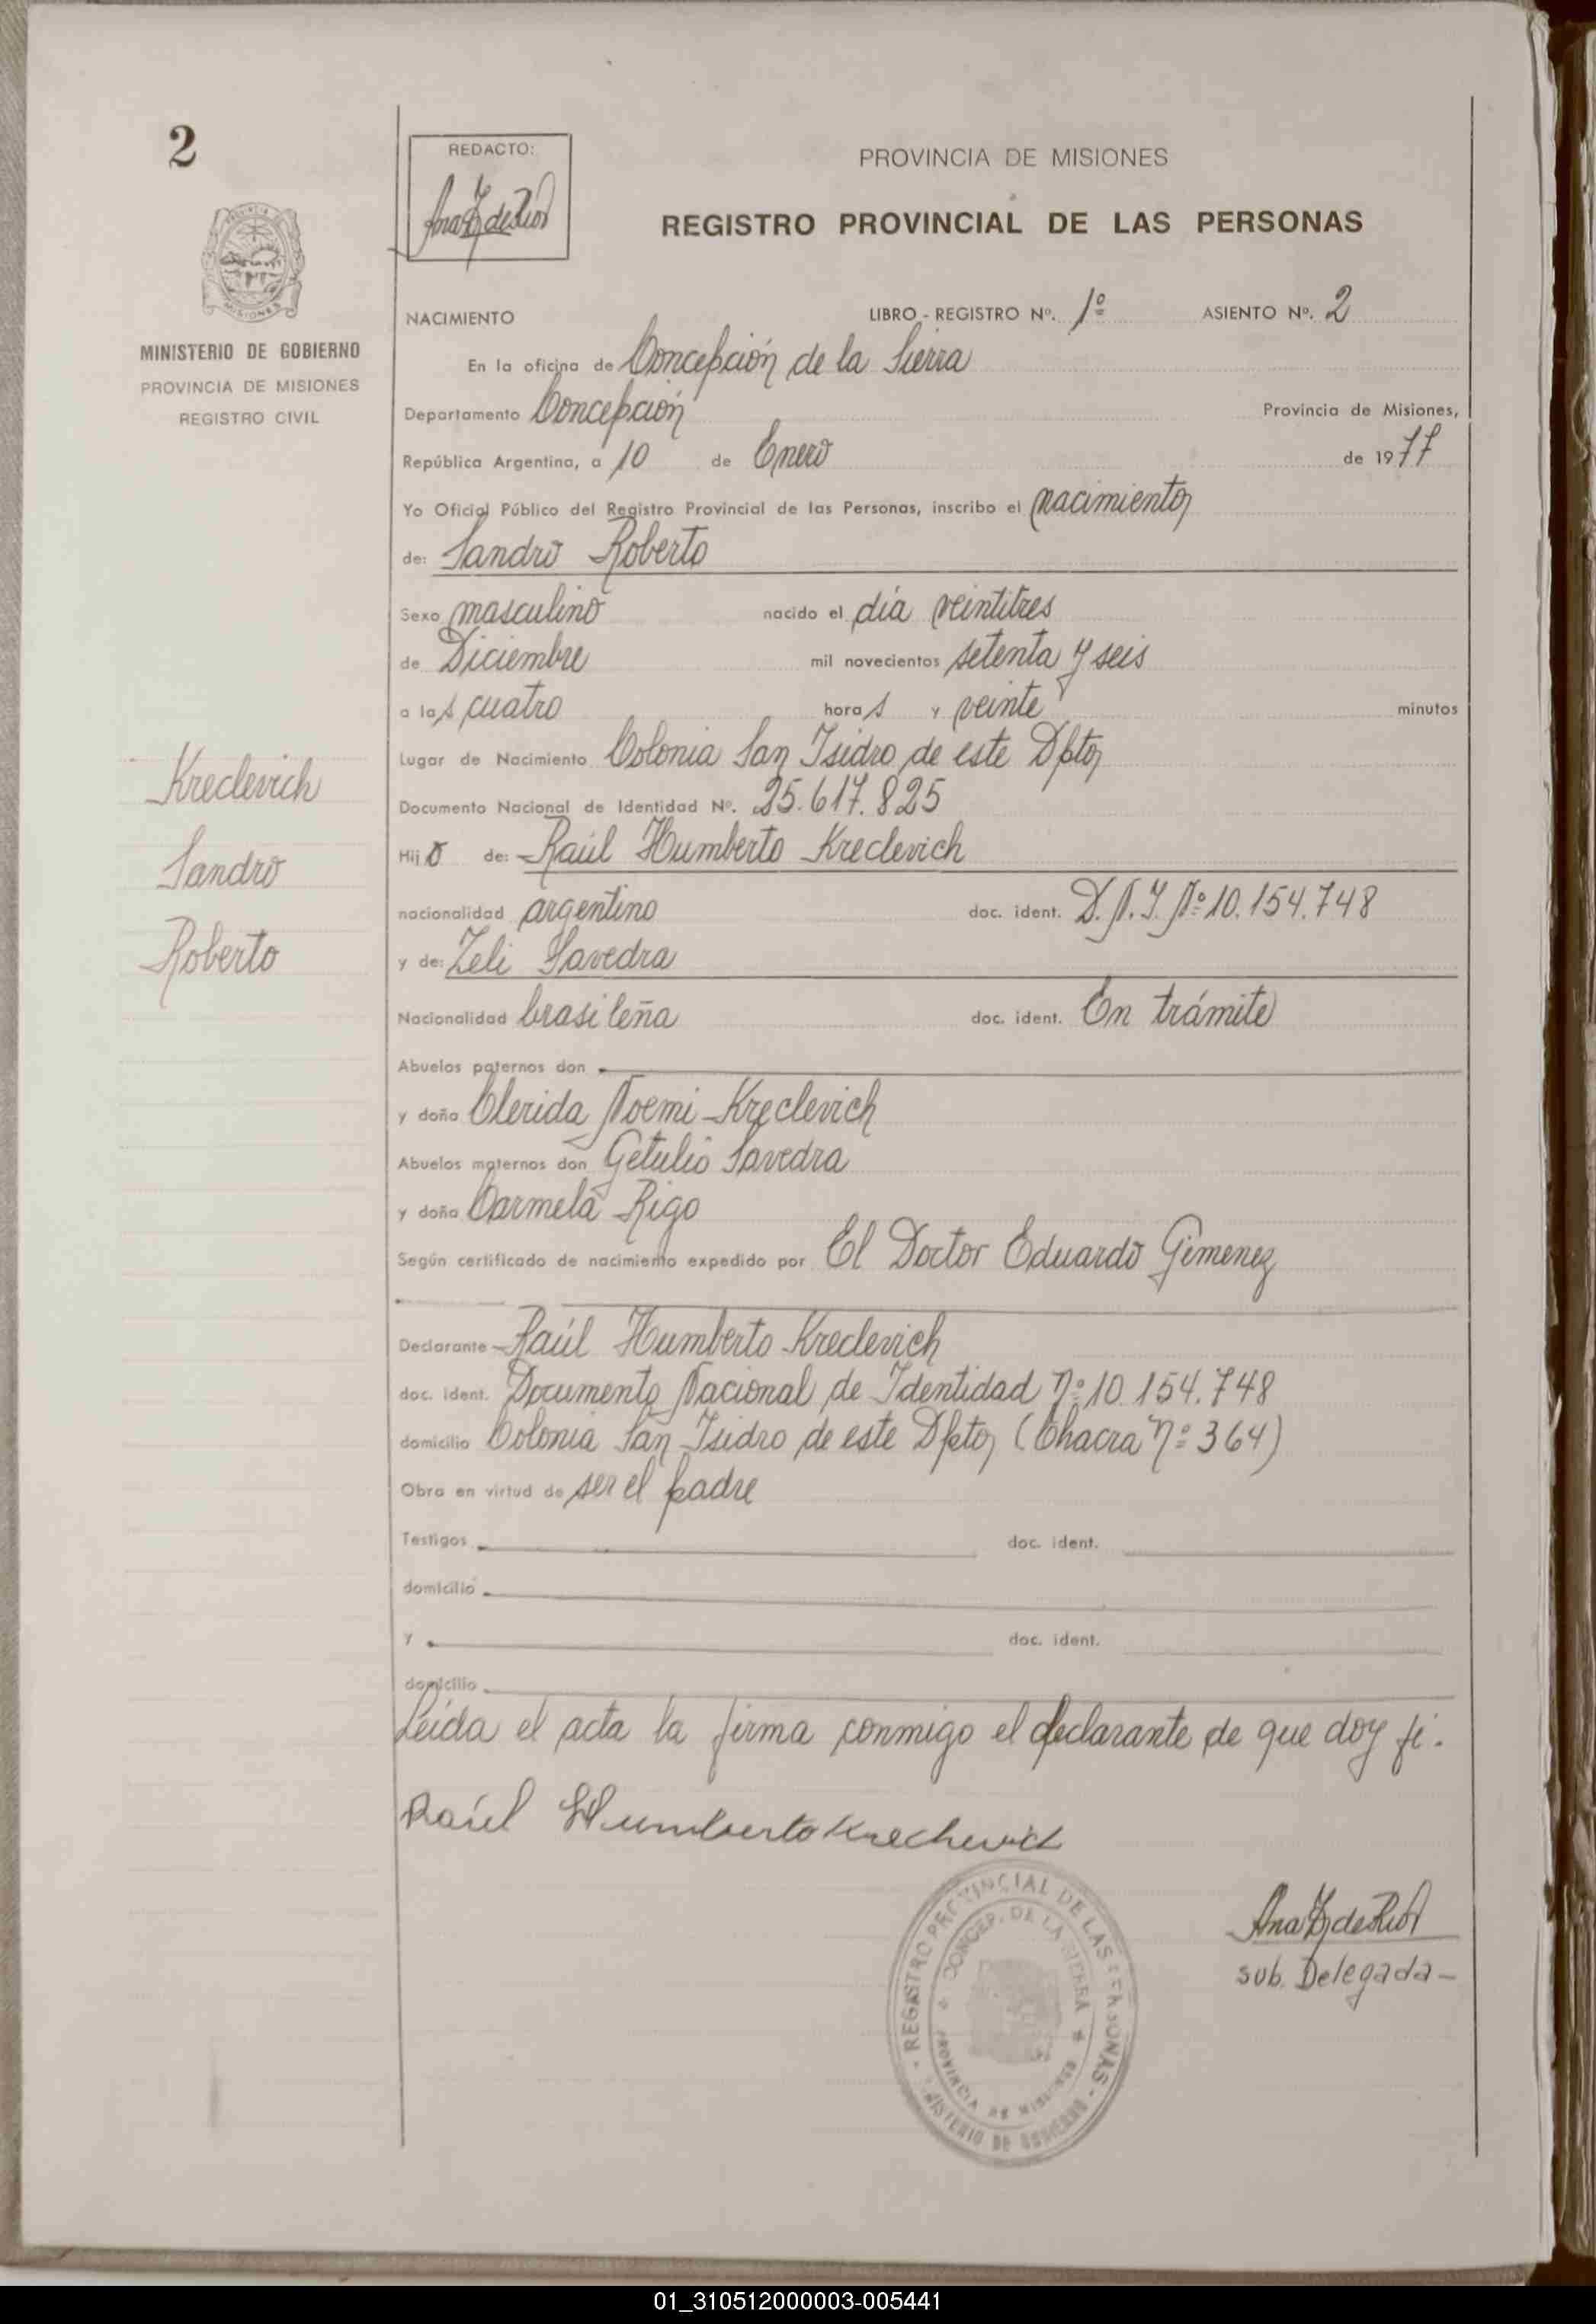 2
REDACTO:
PROVINCIA DE MISIONES
REGISTRO PROVINCIAL DE LAS PERSONAS
MISIONES
MINISTERIO DE GOBIERNO
PROVINCIA DE MISIONES
REGISTRO CIVIL
NACIMIENTO LIBRO - REGISTRO Nº. 1º ASIENTO Nº. 2
En la oficina de Concepción de la Sierra
Departamento Concepción Provincia de Misiones,
República Argentina, a 10 de Enero de 1977
Yo Oficial Público del Registro Provincial de las Personas, inscribo el nacimiento
de: Sandro Roberto
Sexo masculino nacido el día veintitres
de Diciembre mil novecientos setenta y seis
a las cuatro horas y veinte minutos
Lugar de Nacimiento Colonia San Isidro de este Dpto
Documento Nacional de Identidad Nº. 25.617.825
Hijo de: Raúl Humberto Kreclevich
nacionalidad argentino doc. ident. D.N.I. Nº 10.154.748
y de: Zeli Savedra
Nacionalidad brasileña doc. ident. En trámite
Abuelos paternos don
y doña Clerida Noemi Kreclevich
Abuelos maternos don Getulio Savedra
y doña Carmela Rigo
Según certificado de nacimiento expedido por El Doctor Eduardo Gimenez
Declarante Raúl Humberto Kreclevich
doc. ident. Documento Nacional de Identidad Nº 10.154.748
domicilio Colonia San Isidro de este Dpto (Chacra Nº 364)
Obra en virtud de ser el padre
Testigos doc. ident.
domicilio
y doc. ident.
domicilio
Leida el acta la firma conmigo el declarante de que doy fé.
Kreclevich
Sandro
Roberto
Raúl Humberto Kreclevich
sub. Delegada-
REGISTRO PROVINCIAL DE LAS PERSONAS
CONCEP. DE LA SIERRA
PROVINCIA DE MISIONES
MINISTERIO DE GOBIERNO
01_310512000003-005441